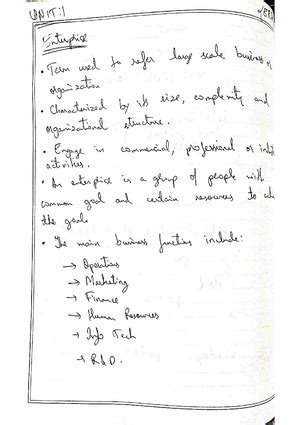 UNIT:1
Enterprise
• Term used to refer large scale business or
organization
• Characterized by its size, complexity and
organizational structure.
• Engage in commercial, professional or
activities.
• An enterprise is a group of people with
common goal and certain resources to
the goal.
• The main business function include:
→ Operations
→ Marketing
→ Finance
→ Human Resources
→ Info Tech
→ R&D.